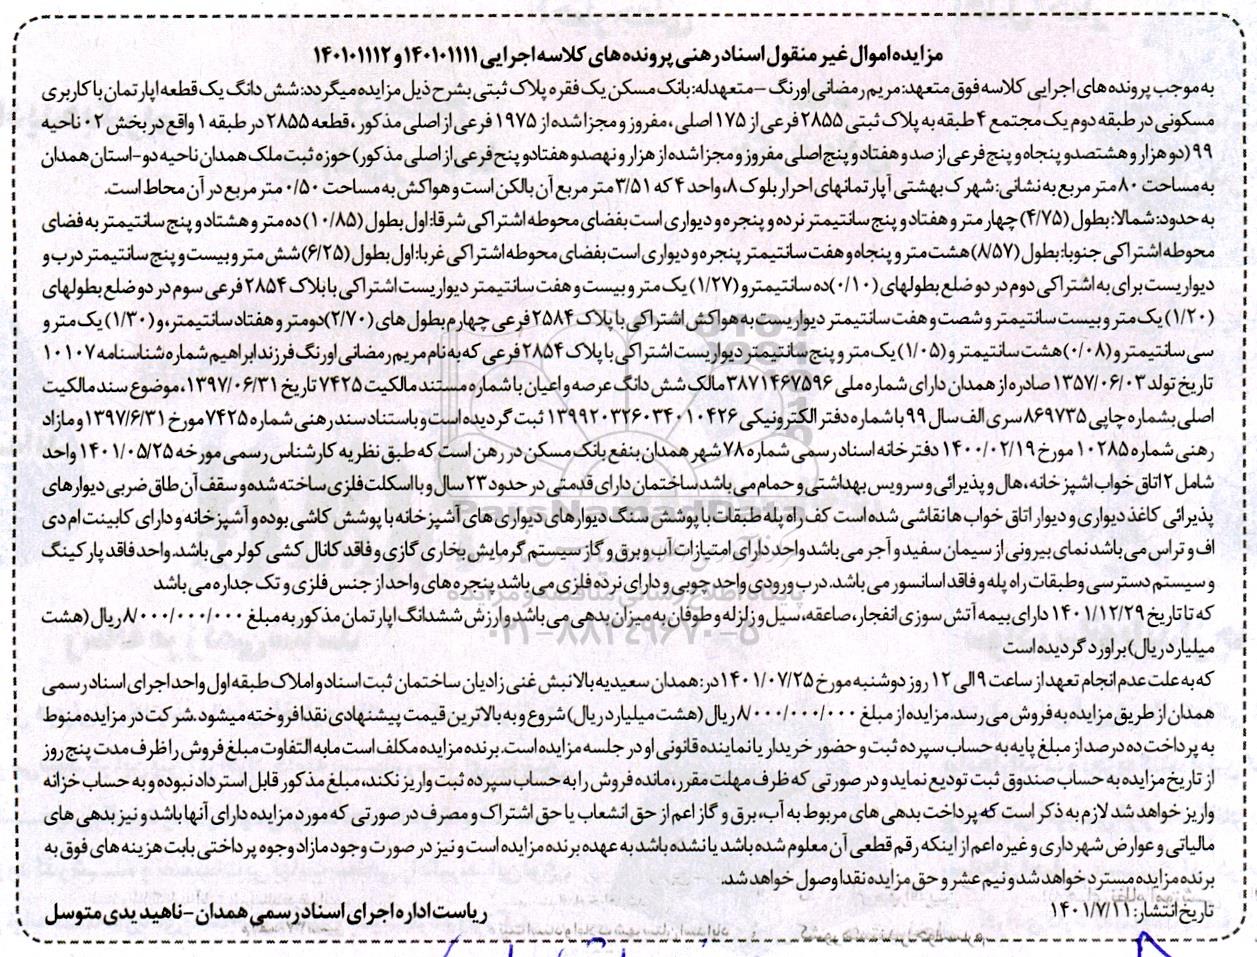 مزایده اموال غیر منقول اسناد رهنی پرونده های کلاسه اجرایی ۱۴۰۱۰۱۱۱۱ و ۱۴۰۱۰۱۱۱۲
به موجب پرونده های اجرایی کلاسه فوق متعهد: مریم رمضانی اورنگ – متعهدله: بانک مسکن یک فقره پلاک ثبتی بشرح ذیل مزایده میگردد: شش دانگ یک قطعه اپارتمان با کاربری
مسکونی در طبقه دوم یک مجتمع ۴ طبقه به پلاک ثبتی ۲۸۵۵ فرعی از ۱۷۵ اصلی ، مفروز و مجزا شده از ۱۹۷۵ فرعی از اصلی مذکور ، قطعه ۲۸۵۵ در طبقه ۱ واقع در بخش ۰۲ ناحیه
۹۹ (دو هزار و هشتصدو پنجاه و پنج فرعی از صد و هفتاد و پنج اصلی مفروز و مجزا شده از هزار و نهصدو هفتادو پنج فرعی از اصلی مذکور) حوزه ثبت ملک همدان ناحیه دو-استان همدان
به مساحت ۸۰ متر مربع به نشانی: شهرک بهشتی آپارتمانهای احرار بلوک ۸، واحد ۴ که ۳/۵۱ متر مربع آن بالکن است و هواکش به مساحت ۰/۵۰ متر مربع در آن محاط است.
به حدود: شمالا: بطول (۴/۷۵) چهار متر و هفتاد و پنج سانتیمتر نرده و پنجره و دیواری است بفضای محوطه اشتراکی شرقا: اول بطول (۱۰/۸۵) ده متر و هشتاد و پنج سانتیمتر به فضای
محوطه اشتراکی جنوبا: بطول (۸/۵۷) هشت متر و پنجاه و هفت سانتیمتر پنجره و دیواری است بفضای محوطه اشتراکی غربا: اول بطول (۶/۲۵) شش متر و بیست و پنج سانتیمتر درب و
دیواریست برای به اشتراکی دوم در دو ضلع بطولهای (۰/۱۰)ده سانتیمتر و (۱/۲۷) یک متر و بیست و هفت سانتیمتر دیواریست اشتراکی با بلاک ۲۸۵۴ فرعی سوم در دو ضلع بطولهای
(۱/۲۰) یک متر و بیست سانتیمتر و شصت و هفت سانتیمتر دیواریست به هواکش اشتراکی با پلاک ۲۵۸۴ فرعی چهارم بطول های (۲/۷۰)دومتر و هفتاد سانتیمتر، و (۱/۳۰) یک متر و
سی سانتیمتر و (۰/۰۸) هشت سانتیمتر و (۱/۰۵) یک متر و پنج سانتیمتر دیواریست اشتراکی با پلاک ۲۸۵۴ فرعی که به نام مریم رمضانی اورنگ فرزند ابراهیم شماره شناسنامه ۱۰۱۰۷
تاریخ تولد ۱۳۵۷/۰۶/۰۳ صادره از همدان دارای شماره ملی ۳۸۷۱۴۶۷۵۹۶ مالک شش دانگ عرصه و اعیان با شماره مستند مالکیت ۷۴۲۵ تاریخ ۱۳۹۷/۰۶/۳۱، موضوع سند مالکیت
اصلی بشماره چاپی ۸۶۹۷۳۵ سری الف سال ۹۹ با شماره دفتر الکترونیکی ۱۳۹۹۲۰۳۲۶۰۳۴۰۱۰۴۲۶ ثبت گردیده است و باستناد سند رهنی شماره ۷۴۲۵ مورخ ۱۳۹۷/۶/۳۱ و مازاد
رهنی شماره ۱۰۲۸۵ مورخ ۱۴۰۰/۰۲/۱۹ دفترخانه اسناد رسمی شماره ۷۸ شهر همدان بنفع بانک مسکن در رهن است که طبق نظریه کارشناس رسمی مورخه ۱۴۰۱/۰۵/۲۵ واحد
شامل ۲ اتاق خواب اشپزخانه ، هال و پذیرائی و سرویس بهداشتی و حمام می باشد ساختمان دارای قدمتی در حدود ۲۳ سال و با اسکلت فلزی ساخته شده و سقف آن طاق ضربی دیوارهای
پذیرائی کاغذ دیواری و دیوار اتاق خواب ها نقاشی شده است کف راه پله طبقات با پوشش سنگ دیوارهای دیواری های آشپزخانه با پوشش کاشی بوده و آشپزخانه و دارای کابینت ام دی
اف و تراس می باشد نمای بیرونی از سیمان سفید و آجر می باشد واحد دارای امتیازات آب و برق و گاز سیستم گرمایش بخاری گازی و فاقد کانال کشی کولر می باشد. واحد فاقد پارکینگ
و سیستم دسترسی و طبقات راه پله و فاقد اسانسور می باشد. درب ورودی واحد چوبی و دارای نرده فلزی می باشد پنجره های واحد از جنس فلزی و تک جداره می باشد
که تا تاریخ ۱۴۰۱/۱۲/۲۹ دارای بیمه آتش سوزی انفجار، صاعقه، سیل و زلزله و طوفان به میزان بدهی می باشد و ارزش ششدانگ اپارتمان مذکور به مبلغ ۸/۰۰۰/۰۰۰/۰۰۰ ریال (هشت
میلیارد ریال) براورد گردیده است
که به علت عدم انجام تعهد از ساعت ۹ الی ۱۲ روز دوشنبه مورخ ۱۴۰۱/۰۷/۲۵ در: همدان سعیدیه بالا نبش غنی زادیان ساختمان ثبت اسناد و املاک طبقه اول واحد اجرای اسناد رسمی
همدان از طریق مزایده به فروش می رسد. مزایده از مبلغ ۸/۰۰۰/۰۰۰/۰۰۰ ریال (هشت میلیارد ریال) شروع و به بالاترین قیمت پیشنهادی نقدا فروخته میشود. شرکت در مزایده منوط
به پرداخت ده درصد از مبلغ پایه به حساب سپرده ثبت و حضور خریدار یا نماینده قانونی او در جلسه مزایده است. برنده مزایده مکلف است مابه التفاوت مبلغ فروش را ظرف مدت پنج روز
از تاریخ مزایده به حساب صندوق ثبت تودیع نماید و در صورتی که ظرف مهلت مقرر، مانده فروش را به حساب سپرده ثبت واریز نکند، مبلغ مذکور قابل استرداد نبوده و به حساب خزانه
واریز خواهد شد لازم به ذکر است که پرداخت بدهی های مربوط به آب، برق و گاز اعم از حق انشعاب یا حق اشتراک و مصرف در صورتی که مورد مزایده دارای آنها باشد و نیز بدهی های
مالیاتی و عوارض شهرداری و غیره اعم از اینکه رقم قطعی آن معلوم شده باشد یا نشده باشد به عهده برنده مزایده است و نیز در صورت وجود مازاد وجوه پرداختی بابت هزینه های فوق به
برنده مزایده مسترد خواهد شد و نیم عشر و حق مزایده نقدا وصول خواهد شد.
تاریخ انتشار: ۱۴۰۱/۷/۱۱
ریاست اداره اجرای اسناد رسمی همدان - ناهید یدی متوسل
ParsNamadData
پایگاه اطلاع رسانی مناقصه و مزایده
۰۲۱-۸۸۳۴۹۶۷۰-۵